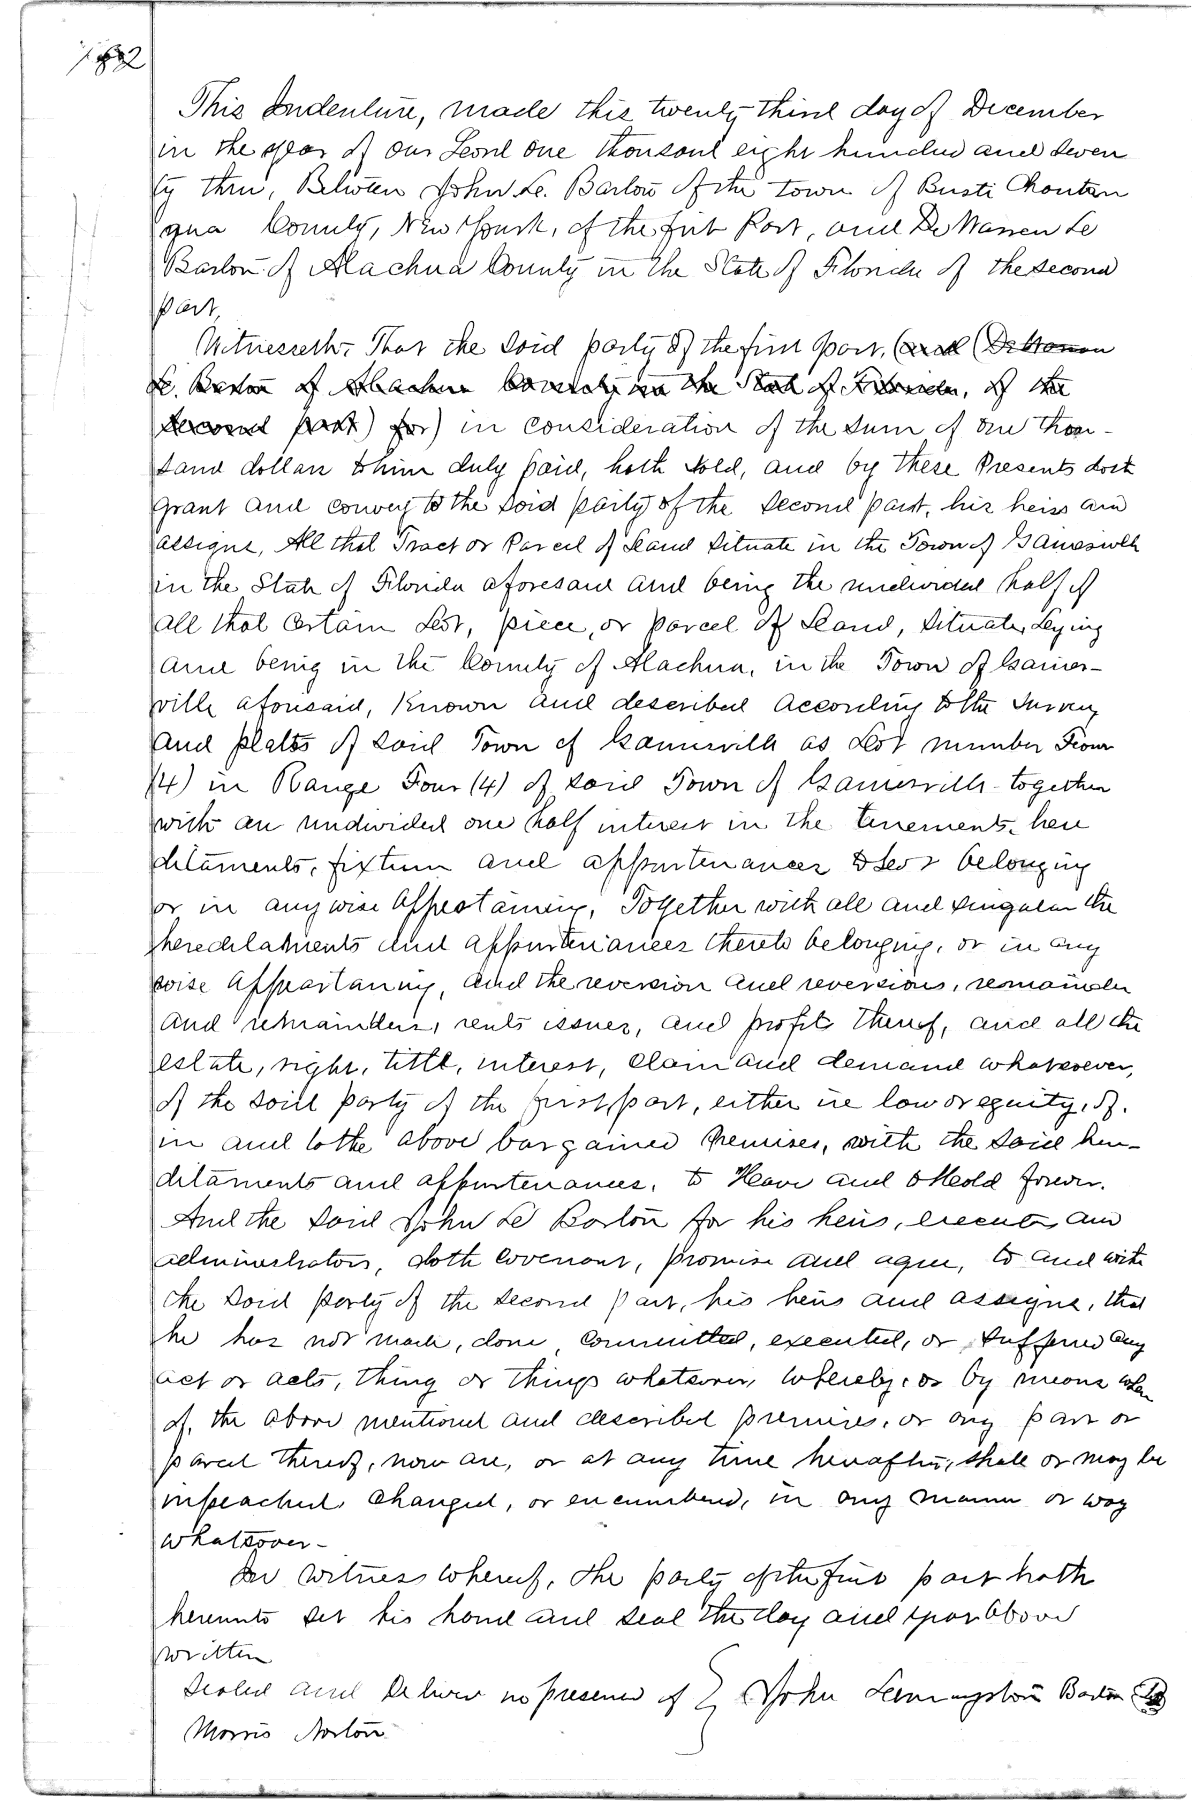 182
This Indenture, made this twenty third day of December
in the year of our Lord one thousand eight hundred and seven
ty three, Between John L. Barton of the town of Busti Chautau
qua County, New York, of the first Part, and DeWarren Le
Barton of Alachua County in the State of Florida of the second
part,
Witnesseth, That the said party of the first part, (and (DeWarren
Le. Barton of Alachua County in the State of Florida, of the
second part) for) in consideration of the sum of one thou-
sand dollars to him duly paid, hath sold, and by these Presents doth
grant and convey to the said party of the second part, his heirs and
assigns, All that Tract or Parcel of Land situate in the Town of Gainesville
in the State of Florida aforesaid and being the undivided half of
all that certain Lot, piece, or parcel of Land, situate, Lying
and being in the County of Alachua, in the Town of Gaines-
ville aforesaid, Known and described according to the survey
and platts of said Town of Gainesville as Lot number Four
(4) in Range Four (4) of said Town of Gainesville together
with an undivided one half interest in the tenements, here
ditaments, fixtures and appurtenances to Lot belonging
or in anywise appertaining, Together with all and singular the
hereditaments and appurtenances thereto belonging, or in any
wise appertaining, and the reversion and reversions, remainder
and remainders, rents issues, and profits thereof, and all the
estate, right, title, interest, claim and demand whatsoever,
of the said party of the first part, either in law or equity, of.
in and to the above bargained Premises, with the said here-
ditaments and appurtenances, to Have and to Hold forever.
And the said John Le Barton for his heirs, executors and
administrators, doth covenant, promise and agree, to and with
the said party of the second part, his heirs and assigns, that
he has not made, done, committed, executed, or suffered any
act or acts, thing or things whatsoever, whereby, or by means where
of, the above mentioned and described premises, or any part or
parcel thereof, now are, or at any time hereafter, shall or may be
impeached, changed, or encumbered, in any manner or way
whatsoever-
In witness whereof, the party of the first part hath
hereunto set his hand and seal the day and year above
written
Sealed and Deliver in presence of } John Barton
Morris Norton